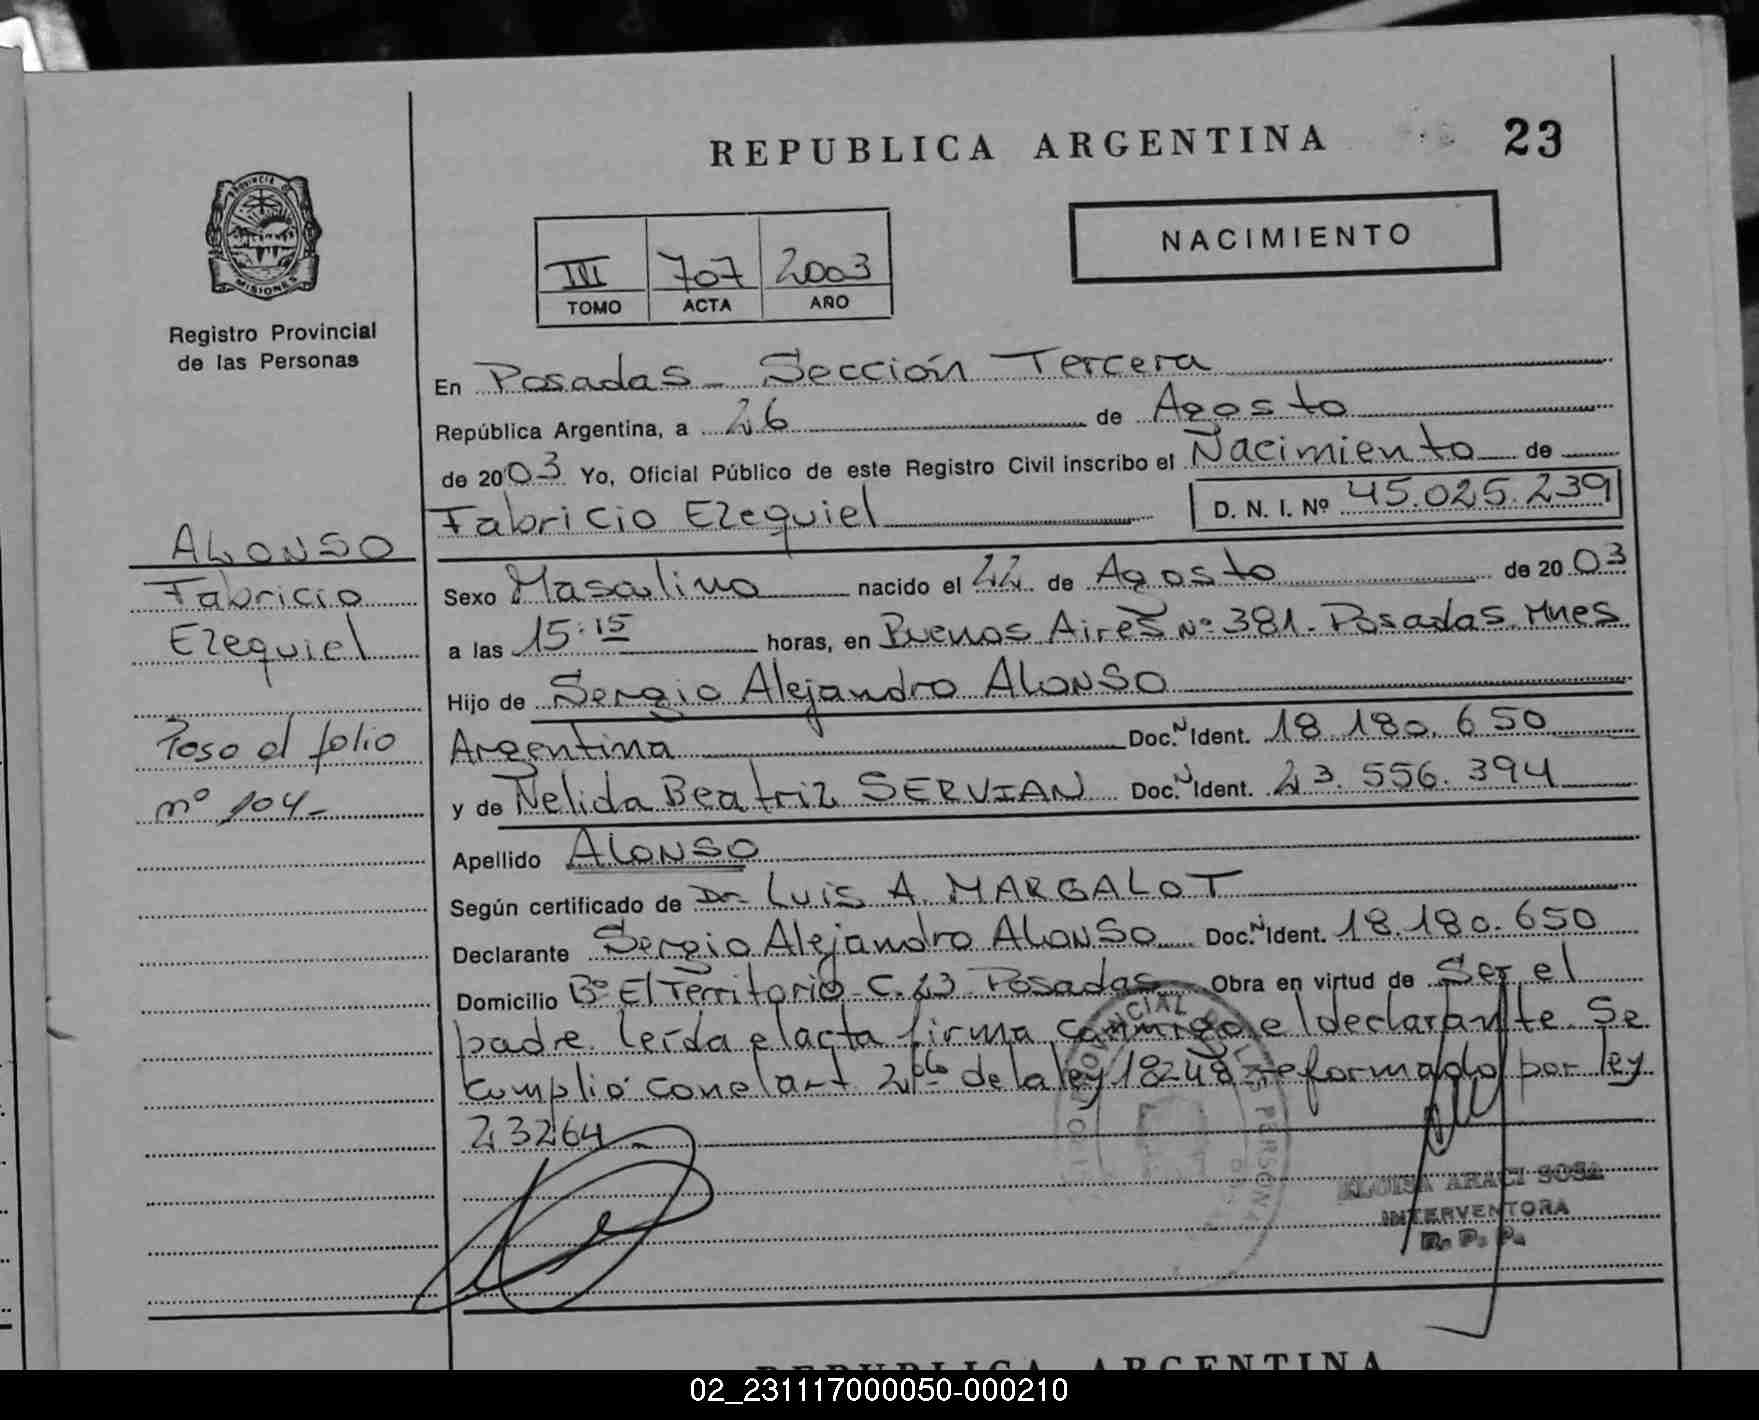 REPUBLICA ARGENTINA
23
PROVINCIA DE
MISIONES
Registro Provincial
de las Personas
NACIMIENTO
III 707 2003
TOMO ACTA AÑO
ALONSO
Fabricio
Ezequiel
Paso al folio
nº 104-
En Posadas - Sección Tercera
República Argentina, a 26 de Agosto
de 2003 Yo, Oficial Público de este Registro Civil inscribo el Nacimiento de
Fabricio Ezequiel D. N. I. Nº 45.025.239
Sexo Masculino nacido el 22 de Agosto de 2003
a las 15:15 horas, en Buenos Aires Nº 381. Posadas. Mnes
Hijo de Sergio Alejandro ALONSO
Argentina Doc. N Ident. 18.180.650
y de Nelida Beatriz SERVIAN Doc. N Ident. 23.556.394
Apellido ALONSO
Según certificado de Dr Luis A. MARGALOT
Declarante Sergio Alejandro ALONSO Doc. N Ident. 18.180.650
Domicilio Bº El Territorio - C. 23 Posadas Obra en virtud de Ser el
padre. leída el acta firma conmigo el declarante. Se
cumplió con el art 2º de la ley 18248 reformado por ley
23264
ELOISA ARACI SOSA
INTERVENTORA
R. P. P.
REPUBLICA ARGENTINA
02_231117000050-000210